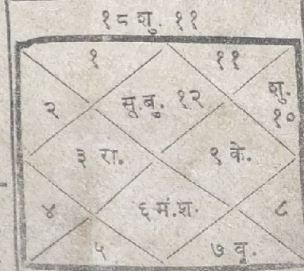 १८ शु. ११
१ ११
२ सू.बु. १२ शु. १०
३ रा. ९ के.
४ ६ मं.श. ८
५ ७ वृ.